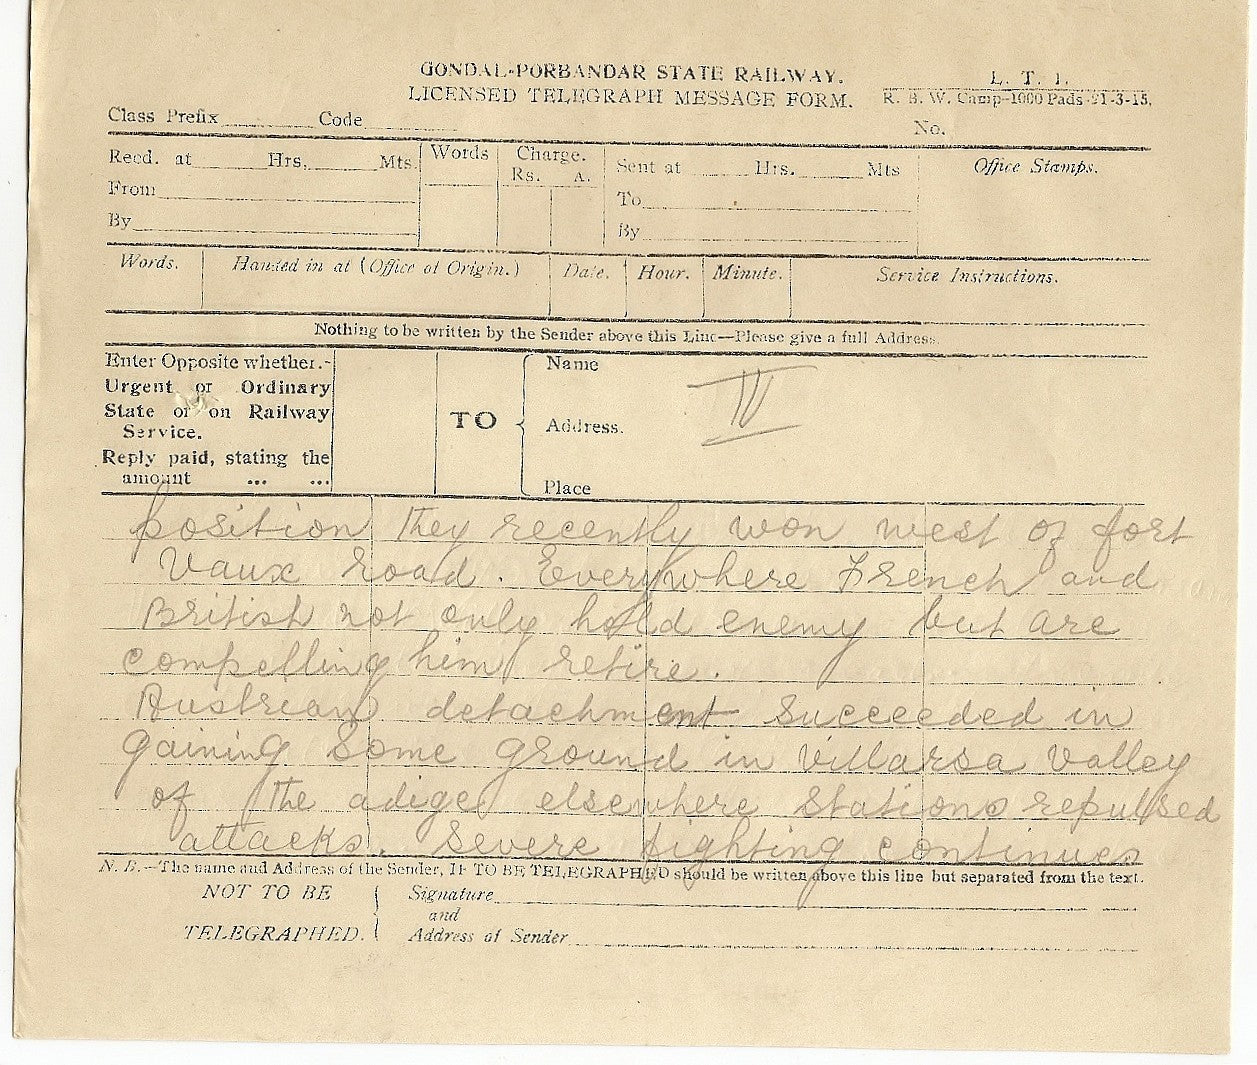 GONDAL-PORBANDAR STATE RAILWAY.
LICENSED TELEGRAPH MESSAGE FORM.
L. T. 1.
R. B. W. Camp-1000 Pads-21-3-15.
Class Prefix Code
No.
Recd. at Hrs. Mts.
From
By
Words
Charge.
Rs. A.
Sent at Hrs. Mts
To
By
Office Stamps.
Words. Handed in at (Office of Origin.) Date. Hour. Minute. Service Instructions.
Nothing to be written by the Sender above this Line—Please give a full Address.
Enter Opposite whether.-
Urgent or Ordinary
State or on Railway
Service.
Reply paid, stating the
amount ... ...
TO
Name
Address.
Place
IV
position they recently won west of fort
Vaux road. Everywhere French and
British not only hold enemy but are
compelling him retire.
Austrian detachment succeeded in
gaining some ground in Villarsa Valley
of the adige elsewhere stations repulsed
attacks. Severe fighting continues
N. B.—The name and Address of the Sender, IF TO BE TELEGRAPHED should be written above this line but separated from the text.
NOT TO BE
TELEGRAPHED.
Signature
and
Address of Sender